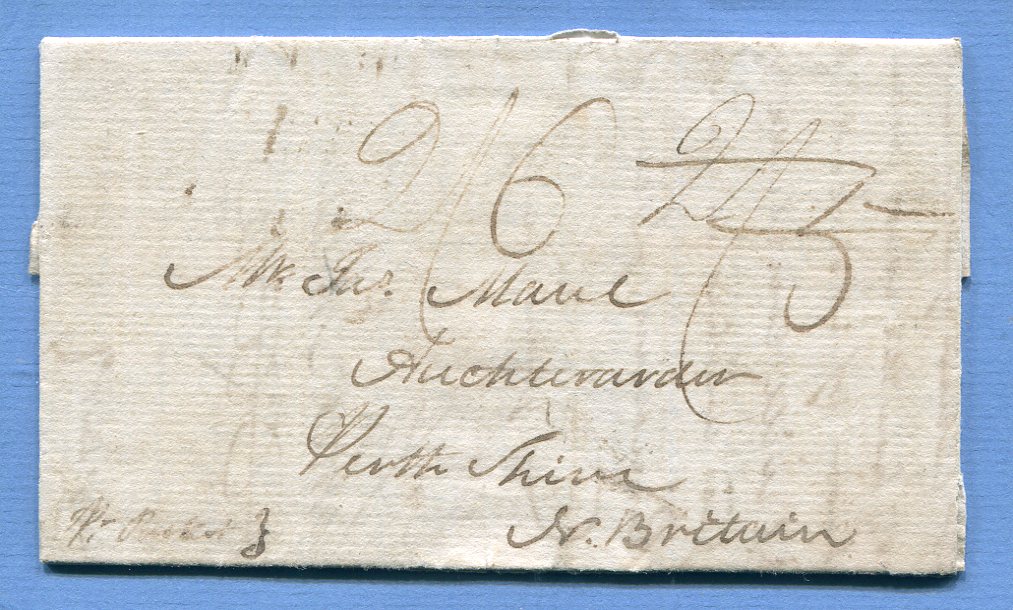 2/6 2/5
Mr. Jas. Maul
Auchterarder
Perth Shire
N. Britain
Pr. Packet